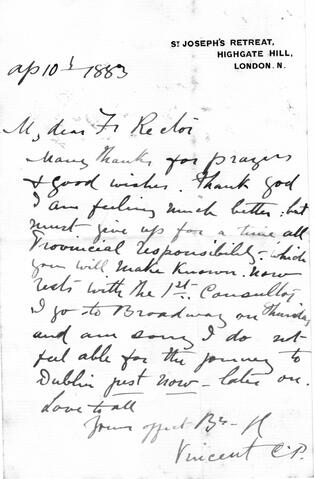 St JOSEPH'S RETREAT,
HIGHGATE HILL,
LONDON. N.
ap 10th 1883
My dear Fr Rector
Many thanks for prayers
& good wishes. Thank God
I am feeling much better. but
must give up for a time all
Provincial responsibility - which
you will make known. now
rests with the 1st Consultor
I go to Broadway on Thursday
and am sorry I do not
feel able for the journey to
Dublin just now - later on.
Love to all
Yours affect Br - 
Vincent C.P.